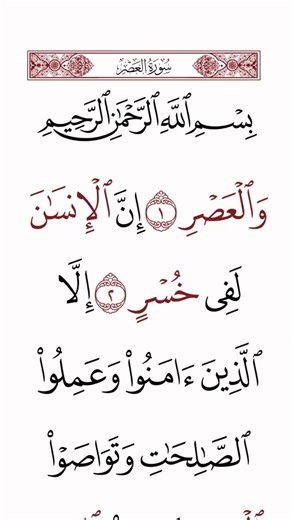 سُورَةُ العَصۡرِ
بِسۡمِ ٱللَّهِ ٱلرَّحۡمَٰنِ ٱلرَّحِيمِ
وَٱلۡعَصۡرِ ١ إِنَّ ٱلۡإِنسَٰنَ
لَفِى خُسۡرٍ ٢ إِلَّا
ٱلَّذِينَ ءَامَنُوا۟ وَعَمِلُوا۟
ٱلصَّٰلِحَٰتِ وَتَوَاصَوۡا۟